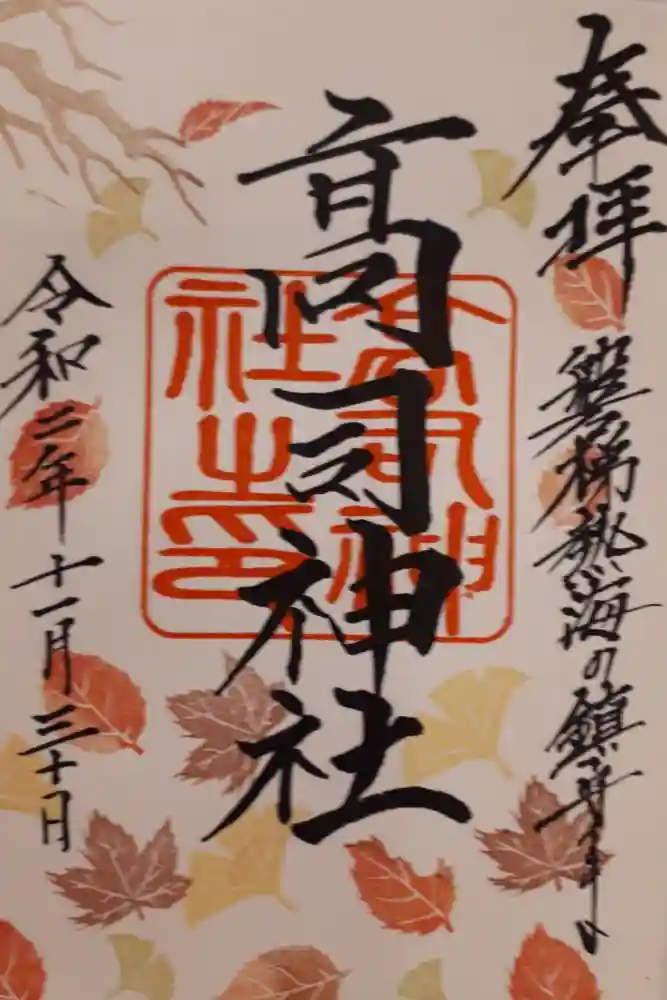 奉拝
磐梯熱海の鎮守
高司神社
高司神
社之印
令和二年十一月三十日